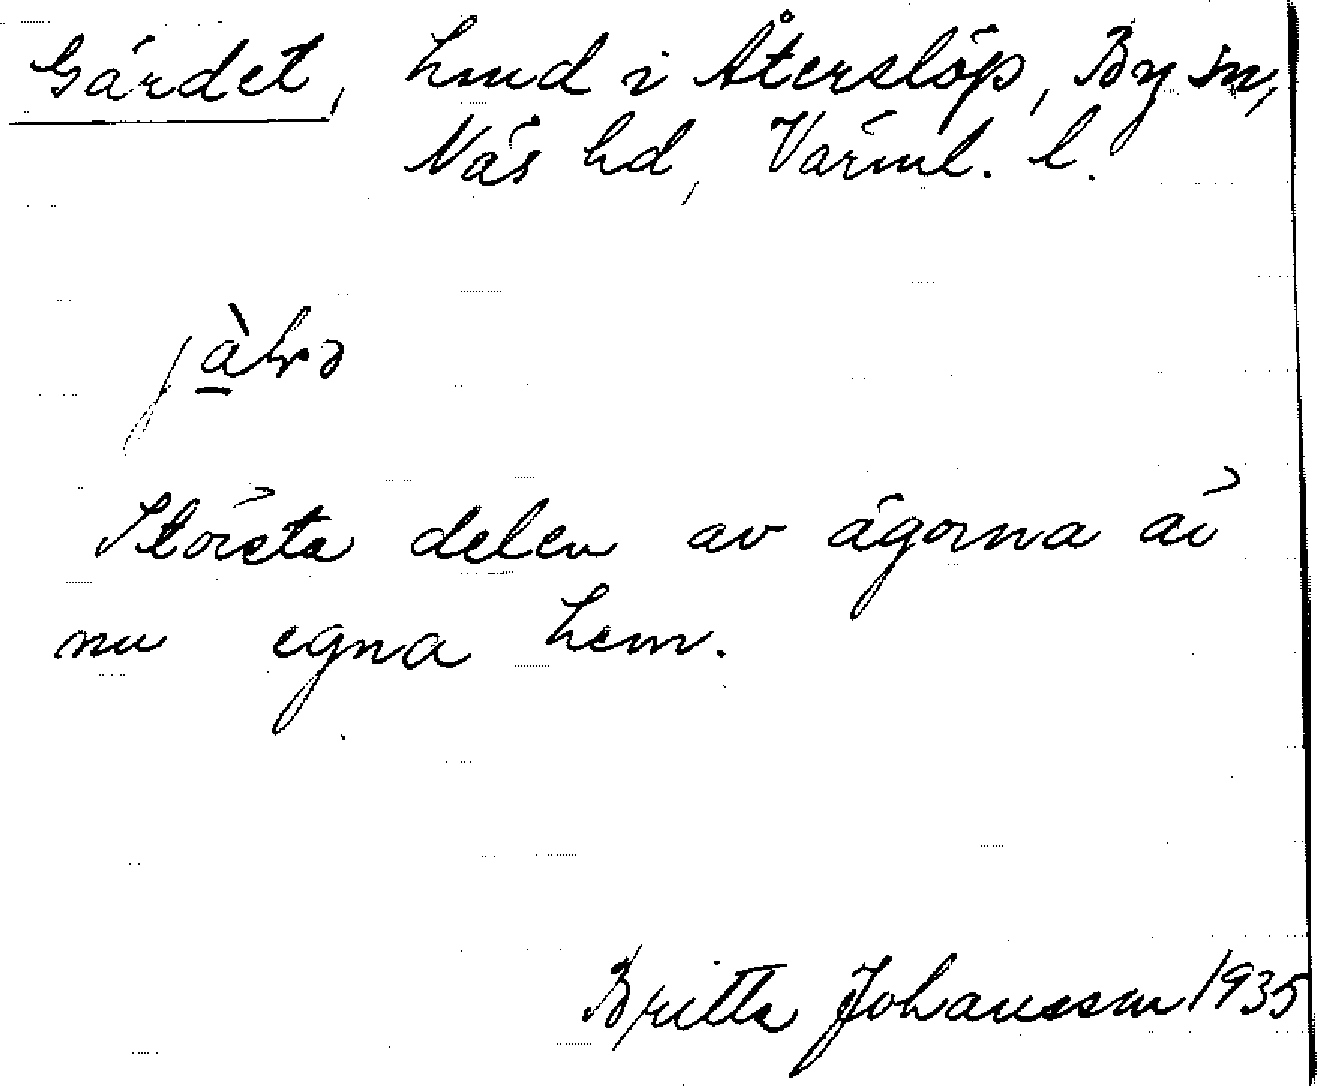 Gärdet, hmd i Återslöp, By sn,
Näs hd, Värml. l.
Största delen av ägorna är
nu egna hem.
Britta Johansson 1935